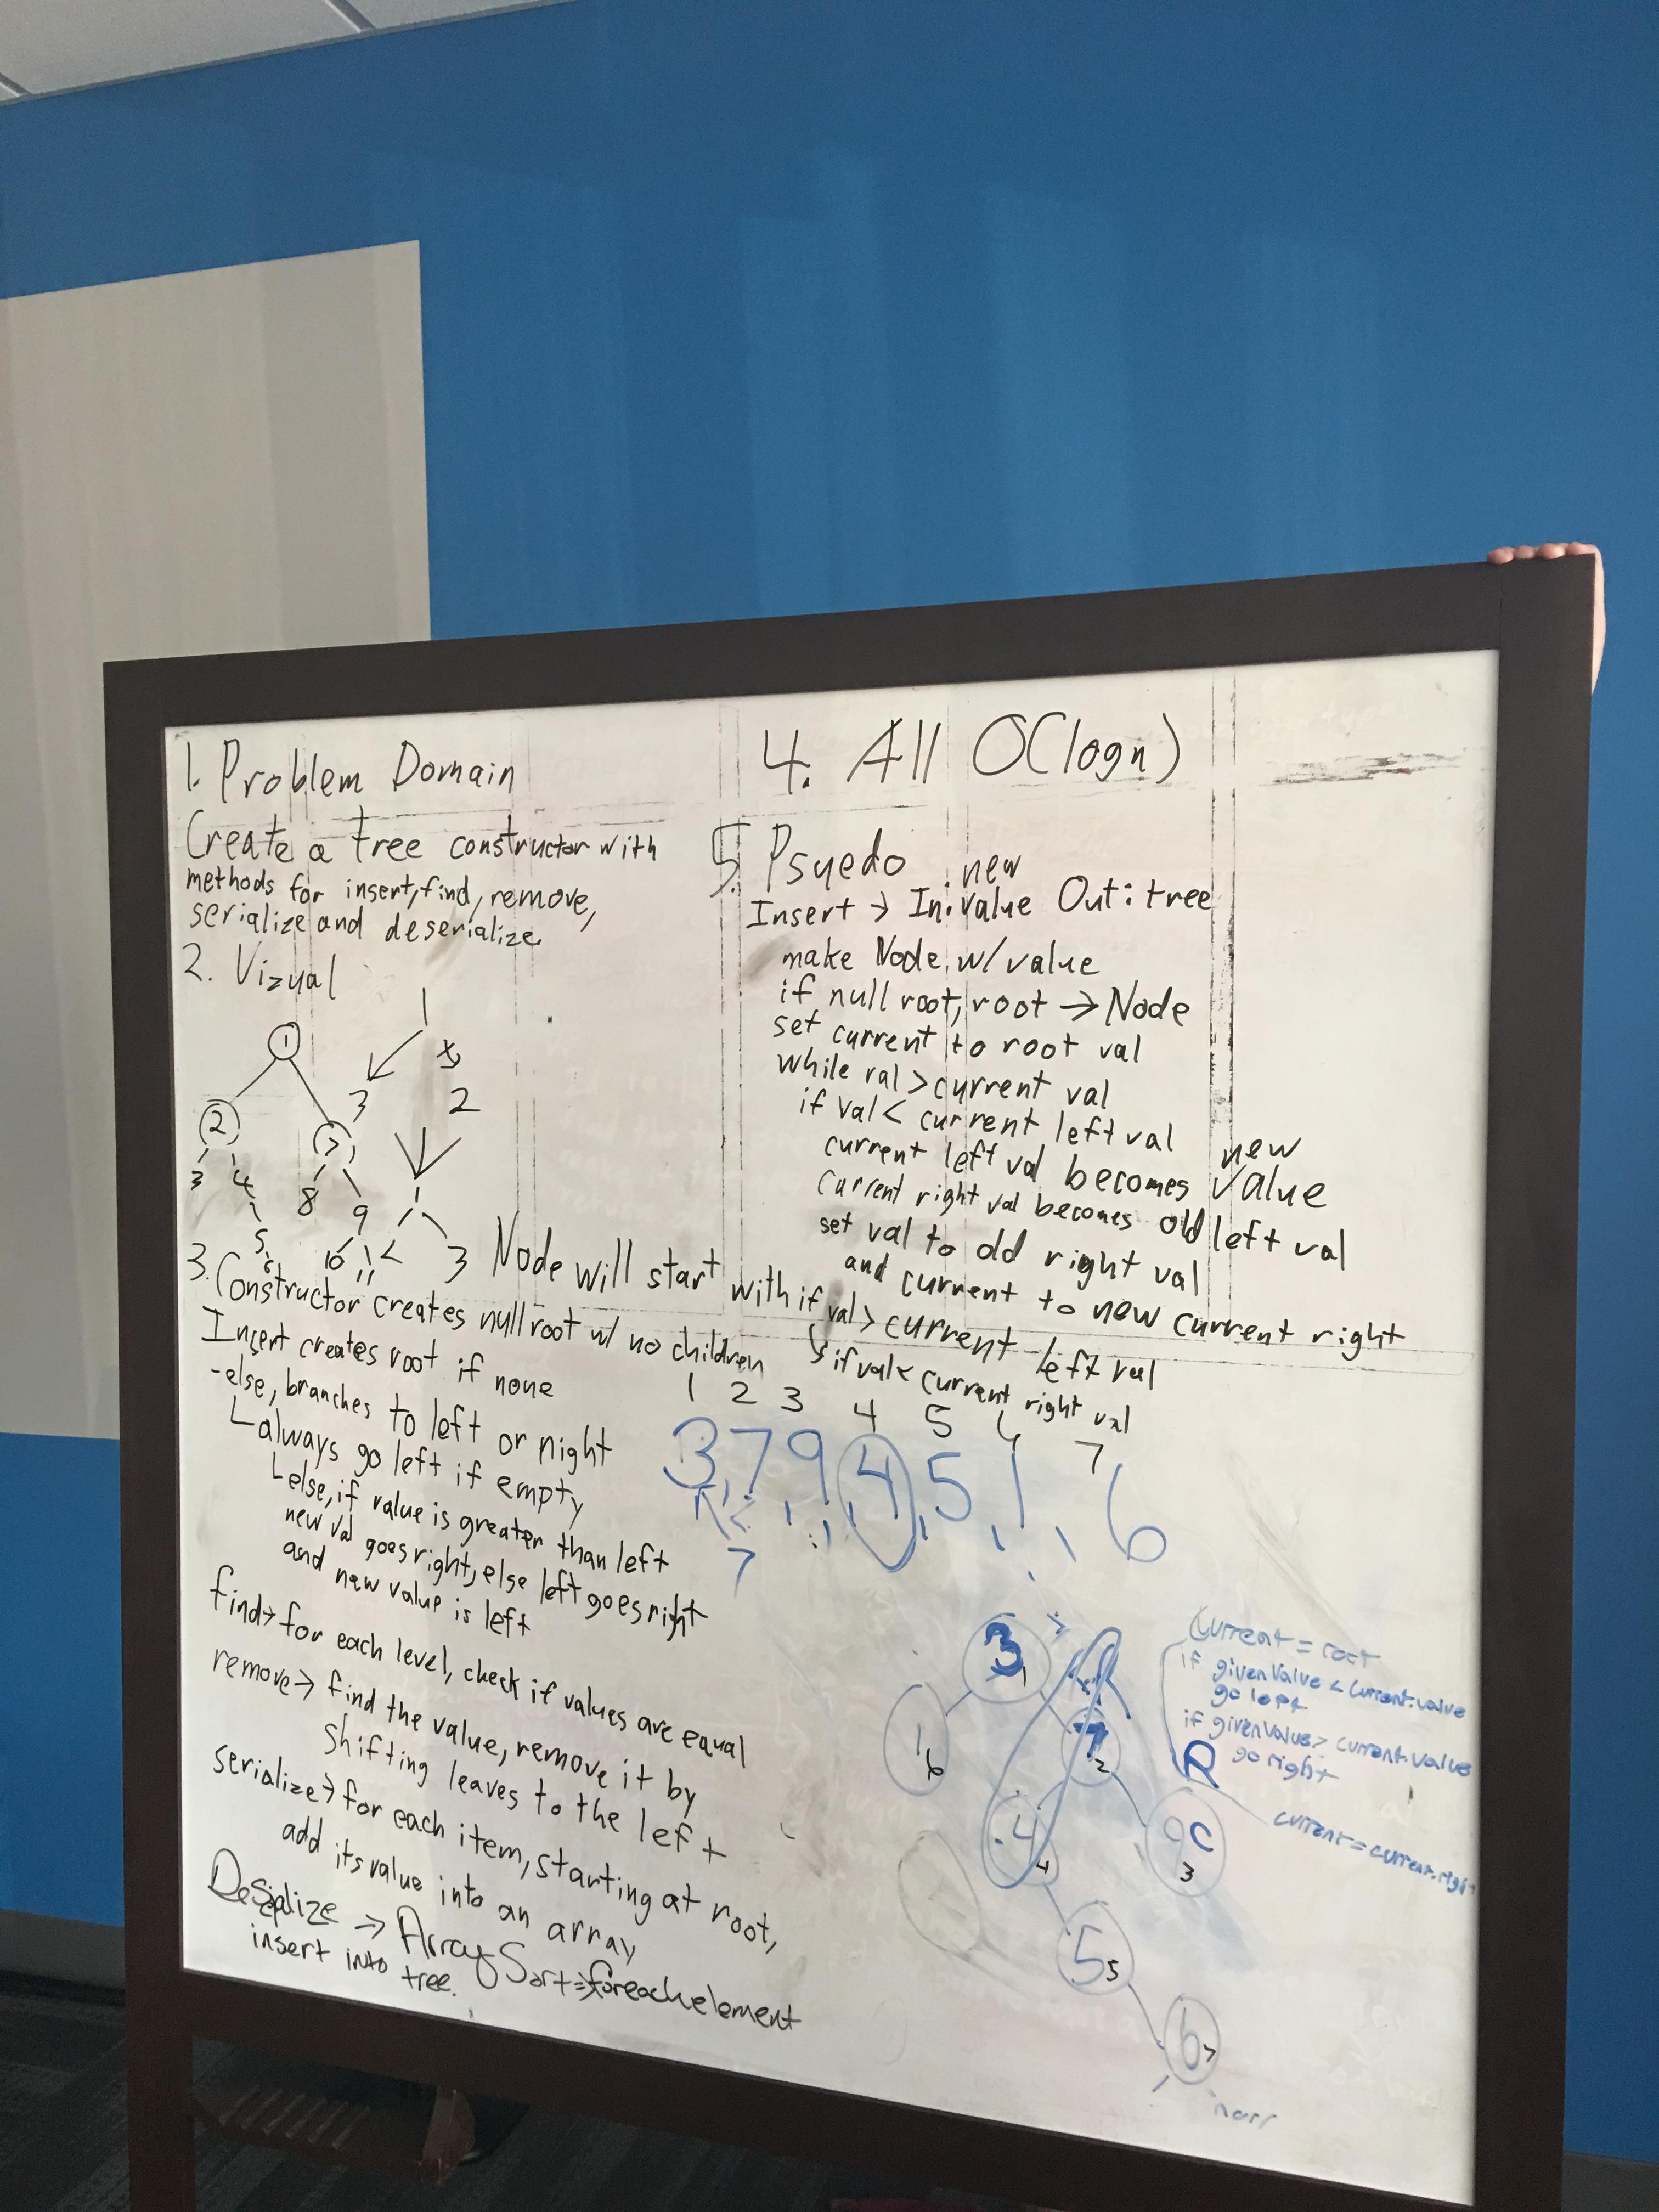 1. Problem Domain
Create a tree constructor with
methods for insert, find, remove,
serialize and deserialize.
2. Vizual
1
2
7
3
4
8
9
5
6
10
11
<
1
3
2
1
3
3. Constructor creates null root w/ no children
Node will start with
Insert creates root if none
-else, branches to left or right
always go left if empty
else, if value is greater than left
new val goes right, else left goes right
and new value is left
find→ for each level, check if values are equal
remove→ find the value, remove it by
shifting leaves to the left
serialize→ for each item, starting at root,
add its value into an array
Array Sort ⇒ foreach element
insert into tree.
4. All O(logn)
5. Psyedo
Insert → In: new value Out: tree
make Node w/ value
if null root, root → Node
set current to root val
while val > current val
if val < current left val
current left val becomes new value
current right val becomes old left val
set val to old right val
and current to new current right
if val > current left val
if val < current right val
1 2 3 4 5 6 7
3, 7, 9, 4, 5, 1, 6
7
3 1
1 6
7 2
4 4
9 C 3
5 5
6 7
Current = root
if givenValue < current.value
go left
if givenValue > current.value
R go right
current = current.right